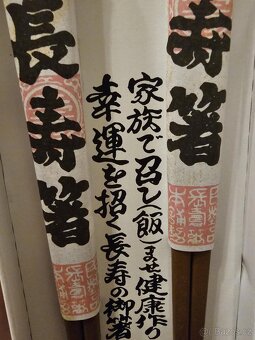 寿箸
家族で召し飯(ませ健康作り
幸運を招く長寿の御箸
長寿箸